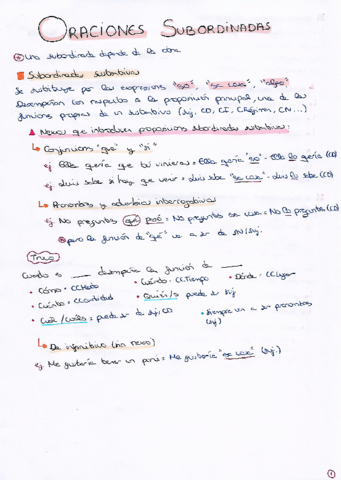 ORACIONES SUBORDINADAS
Una subordinada depende de la otra.
Subordinadas sustantivas
Se sustituye por las expresiones "eso", "esa cosa", "algo"
Desempeñan con respecto a la proposición principal, una de las
funciones propias de un sustantivo (Suj, CD, CI, C.Régimen, CN...)
Nexos que introducen proposiciones subordinadas sustantivas:
Conjunciones "que" y "si"
ej Ella quería que tú vinieras = Ella quería "eso" - Ella lo quería (CD)
ej Luis sabe si hay que venir = Luis sabe "esa cosa" - Luis lo sabe (CD)
Pronombres y adverbios interrogativos
ej No preguntes qué pasó = No preguntes esa cosa = No lo preguntes (CD)
pero la función de "qué" va a ser de SN/Suj.
Truco
Cuando es ___ desempeña la función de ___
• Cómo = CCModo • Cuándo = CCTiempo • Dónde = CCLugar
• Cuánto = CCCantidad • Quién/s puede ser Suj
• Cuál/cuáles = puede ser Suj/CD • Siempre van a ser pronombres
(Suj)
De infinitivo (sin nexo)
ej Me gustaría tener un perro = Me gustaría "esa cosa" (Suj.)
1